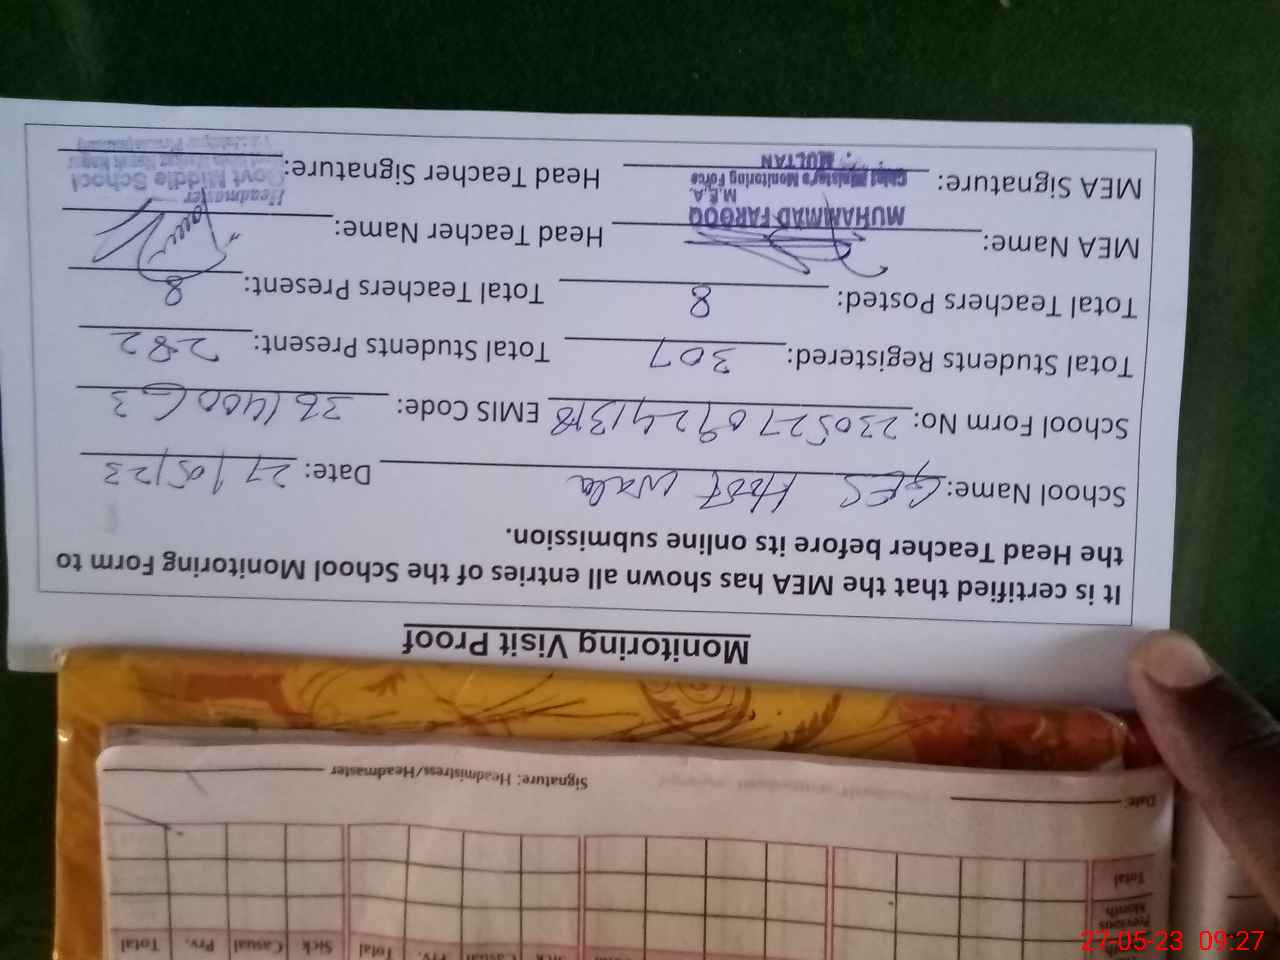 Monitoring Visit Proof
It is certified that the MEA has shown all entries of the School Monitoring Form to
the Head Teacher before its online submission.
School Name: GES Hoot wala Date: 27/05/23
School Form No: EMIS Code:
Total Students Registered: 307 Total Students Present: 282
Total Teachers Posted: 8 Total Teachers Present: 8
MEA Name: Head Teacher Name:
MUHAMMAD FAROOQ
M.E.A.
Chief Minister's Monitoring Force
MULTAN
MEA Signature: Head Teacher Signature:
Headmaster
Govt Middle School
Date: Signature: Headmistress/Headmaster
Total
Previous
Month
Sick Casual Prv. Total
Total
27-05-23 09:27